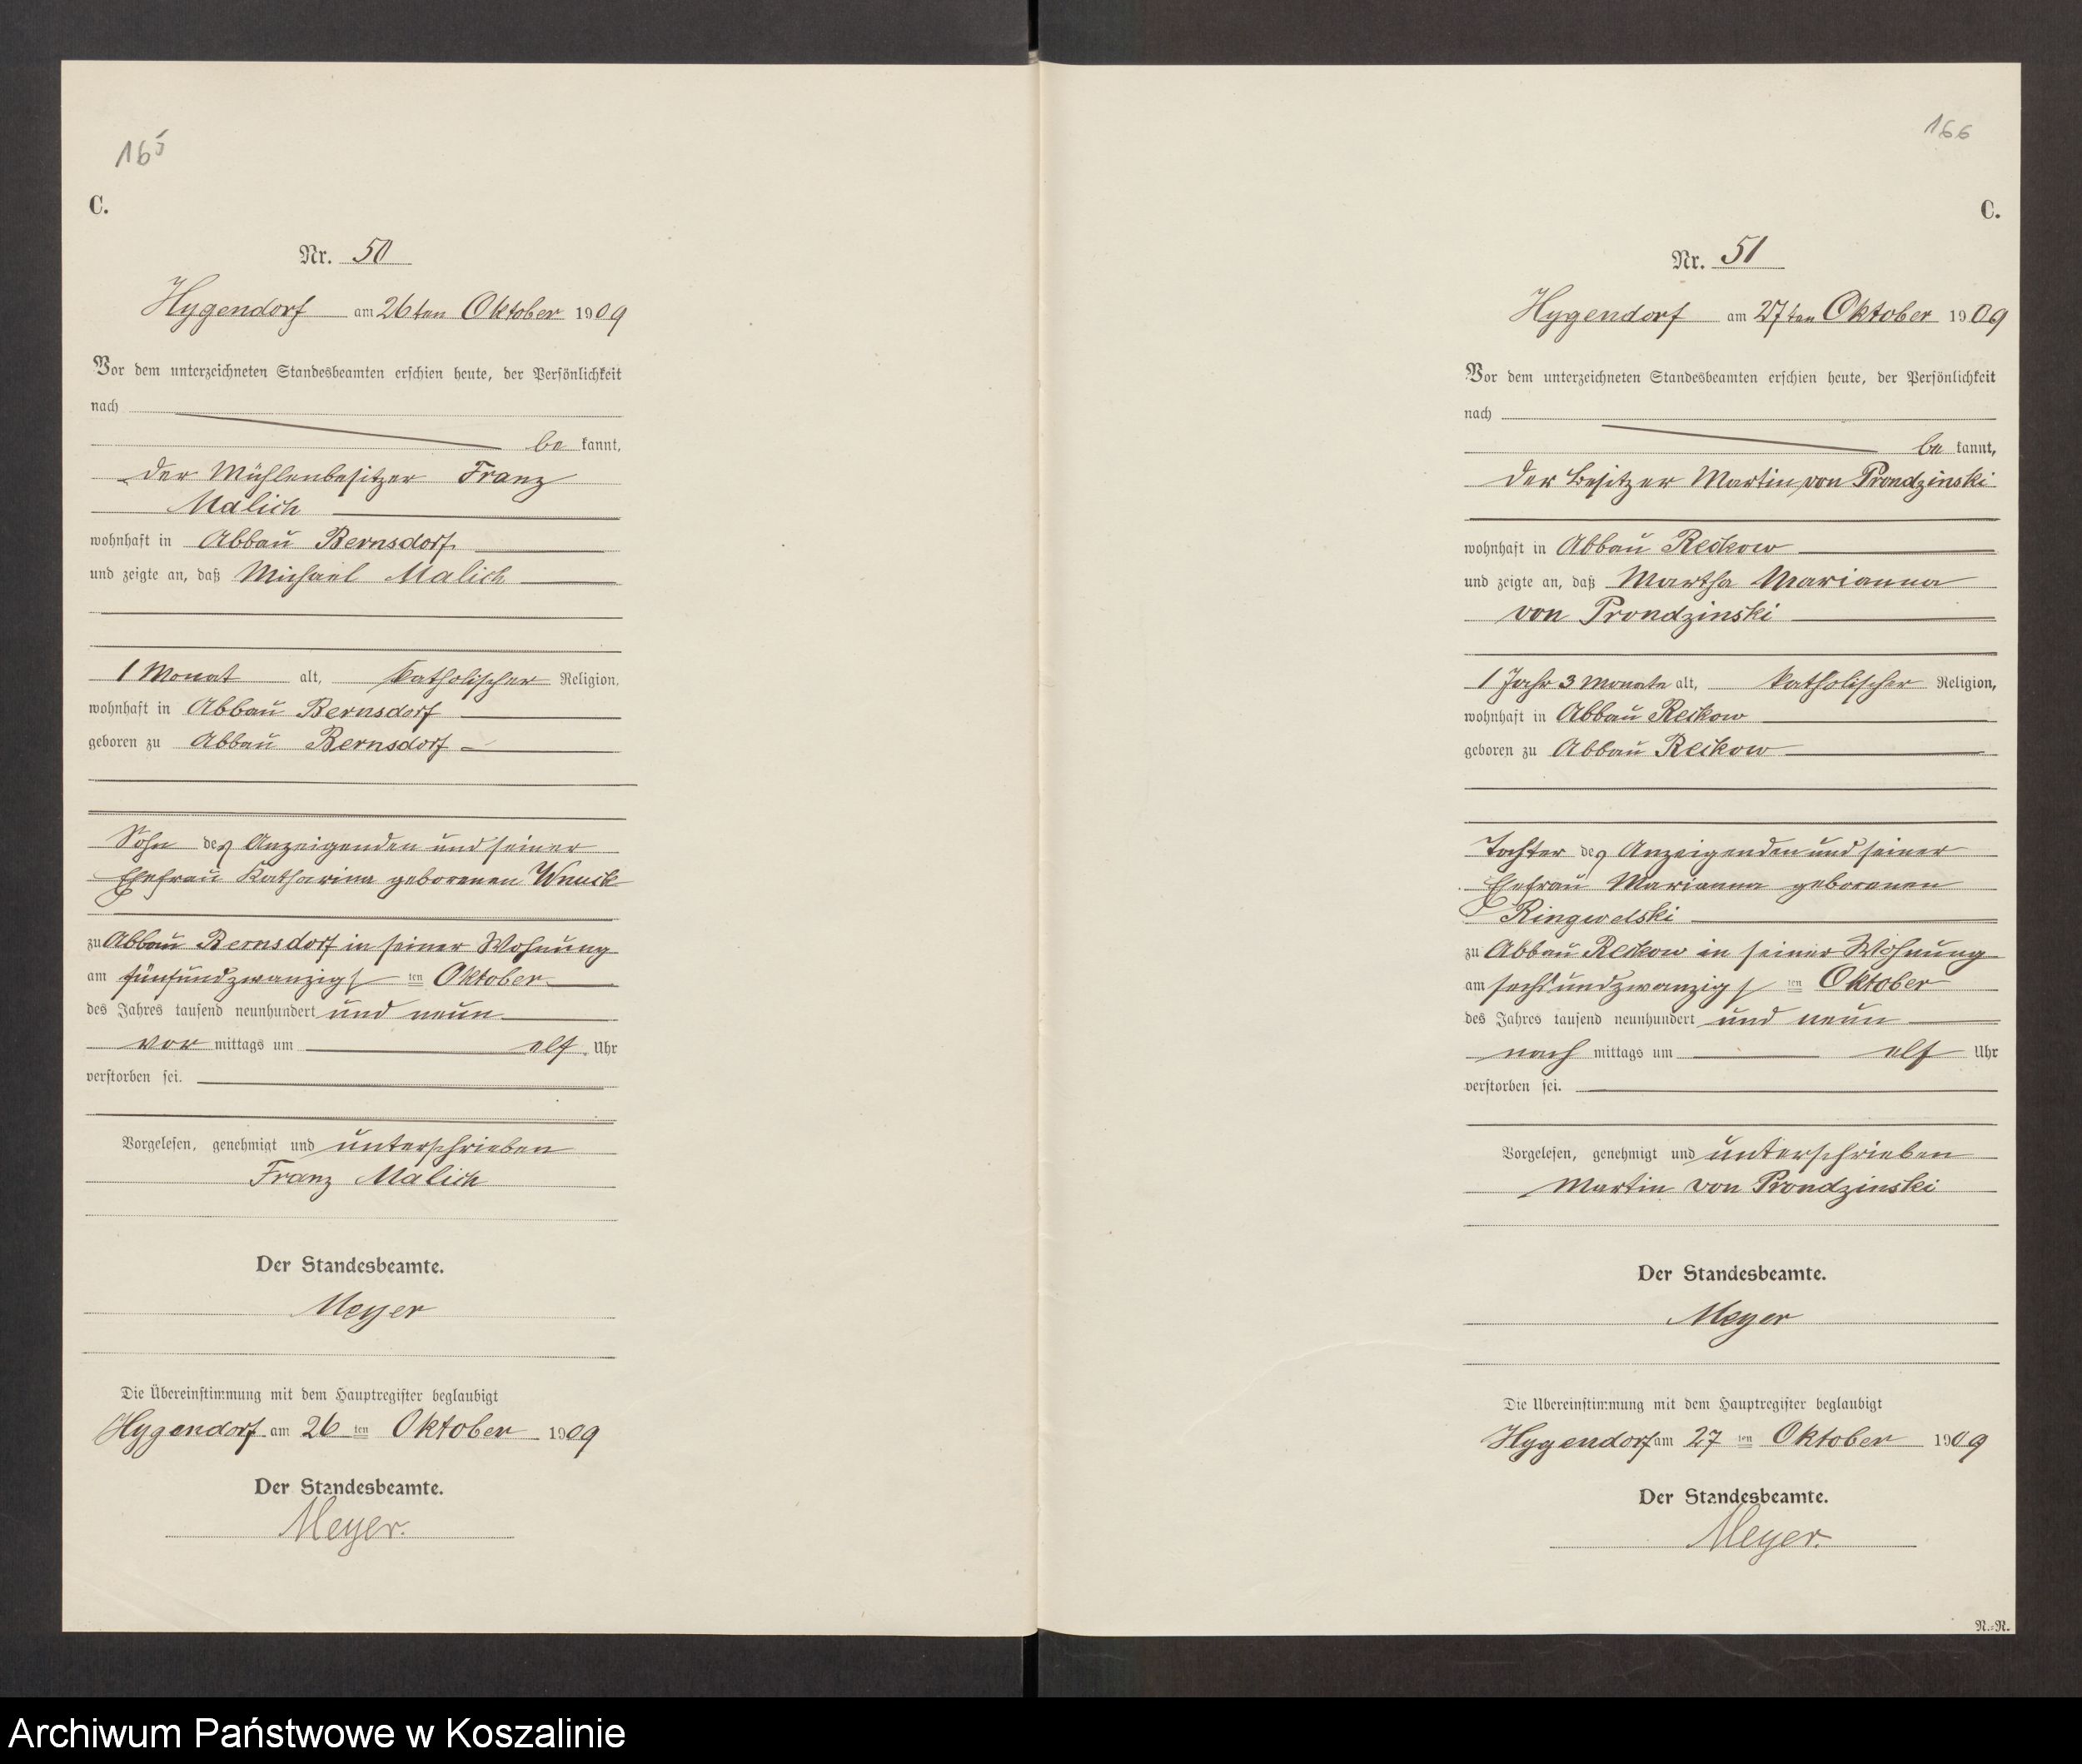 165
C.
Nr. 50
Hygendorf am 26ten Oktober 1909
Vor dem unterzeichneten Standesbeamten erschien heute, der Persönlichkeit
nach
be kannt,
der Mühlenbesitzer Franz
Malich
wohnhaft in Abbau Bernsdorf
und zeigte an, daß Michael Malich
1 Monat alt, katholischer Religion,
wohnhaft in Abbau Bernsdorf
geboren zu Abbau Bernsdorf
Sohn des Anzeigenden und seiner
Ehefrau Katharina geborenen Wnuck
zu Abbau Bernsdorf in seiner Wohnung
am fünfundzwanzigsten Oktober
des Jahres tausend neunhundert und neun
vor mittags um elf Uhr
verstorben sei.
Vorgelesen, genehmigt und unterschrieben
Franz Malich
Der Standesbeamte.
Meyer
Die Übereinstimmung mit dem Hauptregister beglaubigt
Hygendorf am 26 ten Oktober 1909
Der Standesbeamte.
Meyer.
166
C.
Nr. 51
Hygendorf am 27ten Oktober 1909
Vor dem unterzeichneten Standesbeamten erschien heute, der Persönlichkeit
nach
be kannt,
der Besitzer Martin von Prondzinski
wohnhaft in Abbau Reckow
und zeigte an, daß Martha Marianna
von Prondzinski
1 Jahr 3 Monate alt, katholischer Religion,
wohnhaft in Abbau Reckow
geboren zu Abbau Reckow
Tochter des Anzeigenden und seiner
Ehefrau Marianna geborenen
Ringwelski
zu Abbau Reckow in seiner Wohnung
am sechsundzwanzigsten Oktober
des Jahres tausend neunhundert und neun
nach mittags um elf Uhr
verstorben sei.
Vorgelesen, genehmigt und unterschrieben
Martin von Prondzinski
Der Standesbeamte.
Meyer
Die Übereinstimmung mit dem Hauptregister beglaubigt
Hygendorf am 27 ten Oktober 1909
Der Standesbeamte.
Meyer.
N.=N.
Archiwum Państwowe w Koszalinie